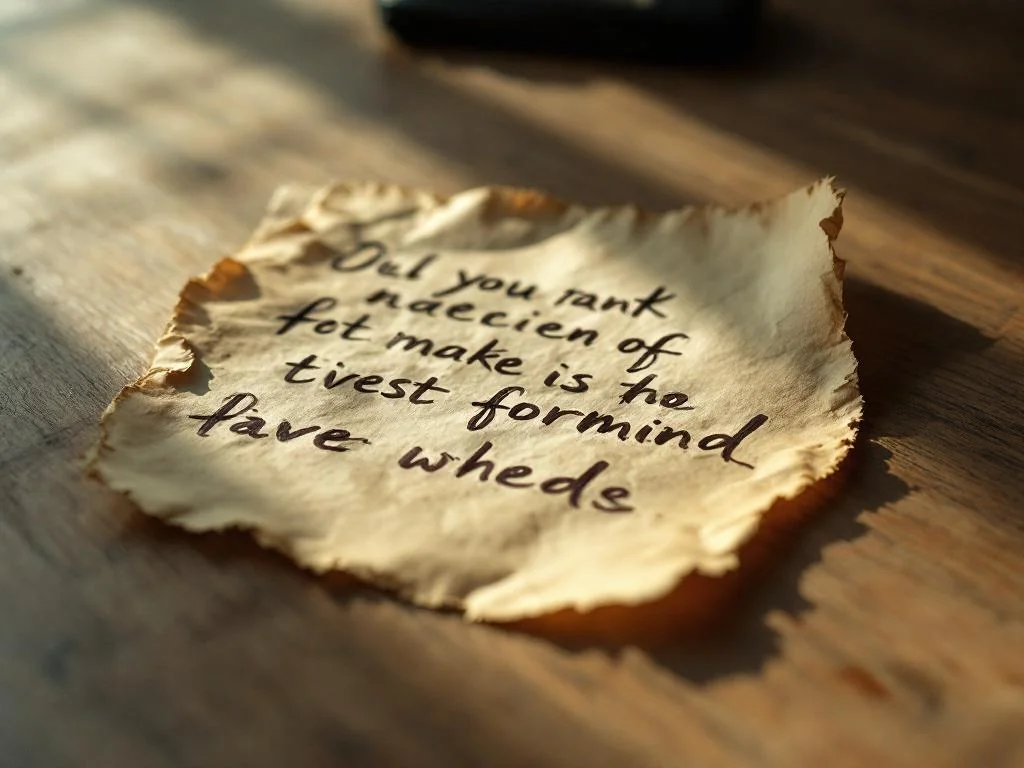 Oul you rank
naecien of
fot make is he
tivest formind
fave wheds